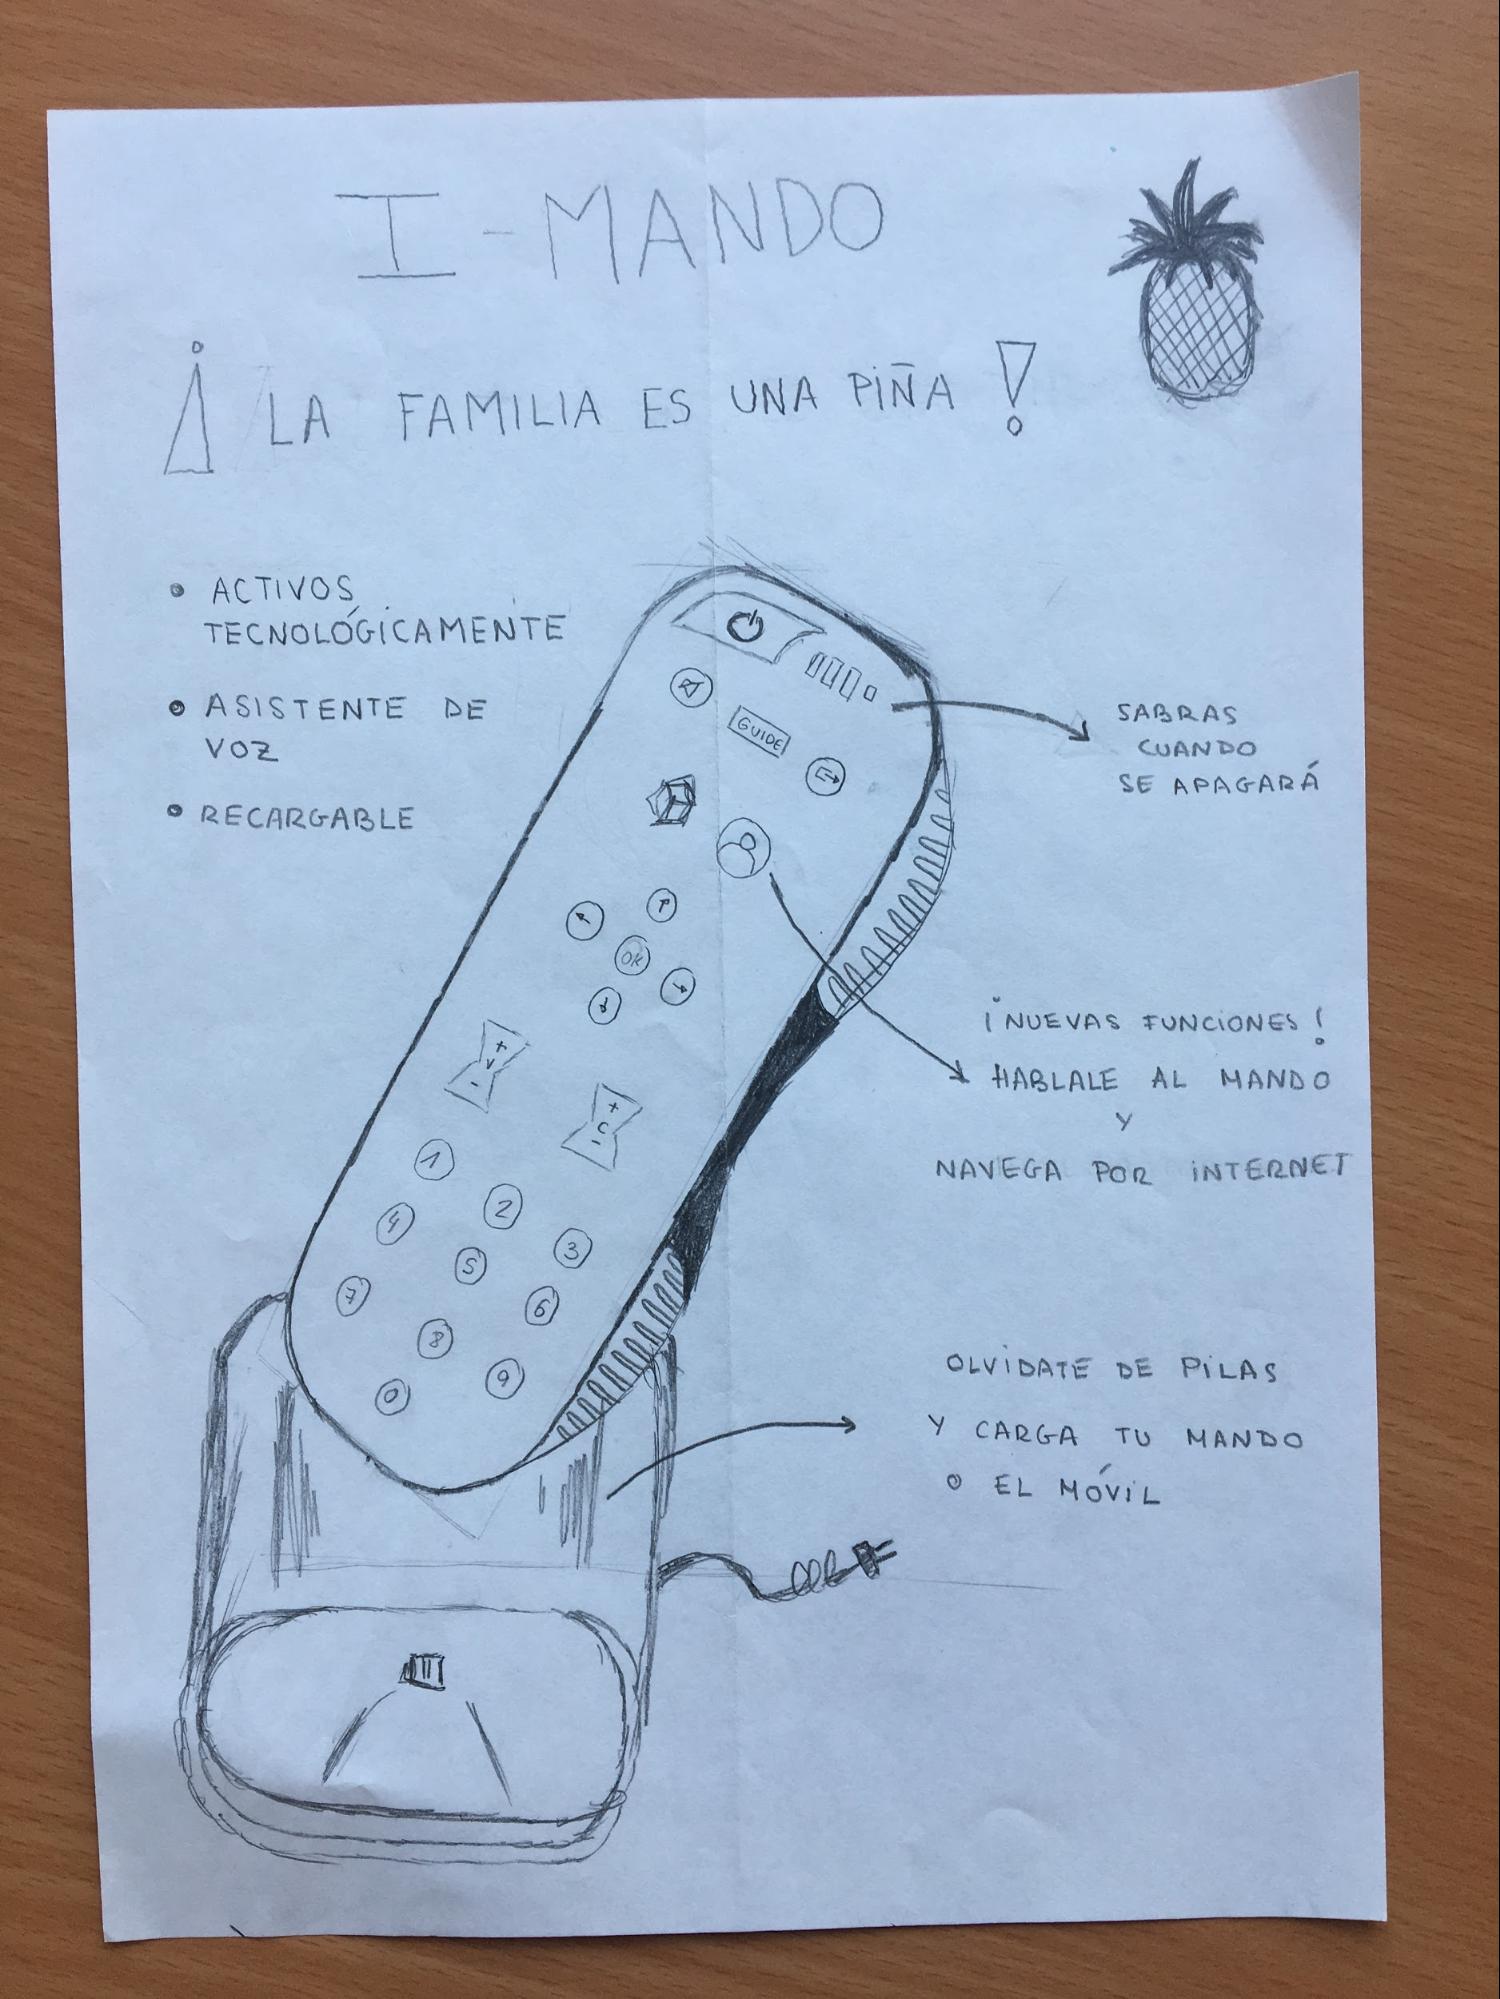 I-MANDO
¡LA FAMILIA ES UNA PIÑA!
• ACTIVOS
TECNOLÓGICAMENTE
• ASISTENTE DE
VOZ
• RECARGABLE
SABRAS
CUANDO
SE APAGARÁ
GUIDE
OK
+
V
-
+
C
-
1
2
3
4
5
6
7
8
9
0
¡NUEVAS FUNCIONES!
HABLALE AL MANDO
Y
NAVEGA POR INTERNET
OLVIDATE DE PILAS
Y CARGA TU MANDO
O EL MÓVIL